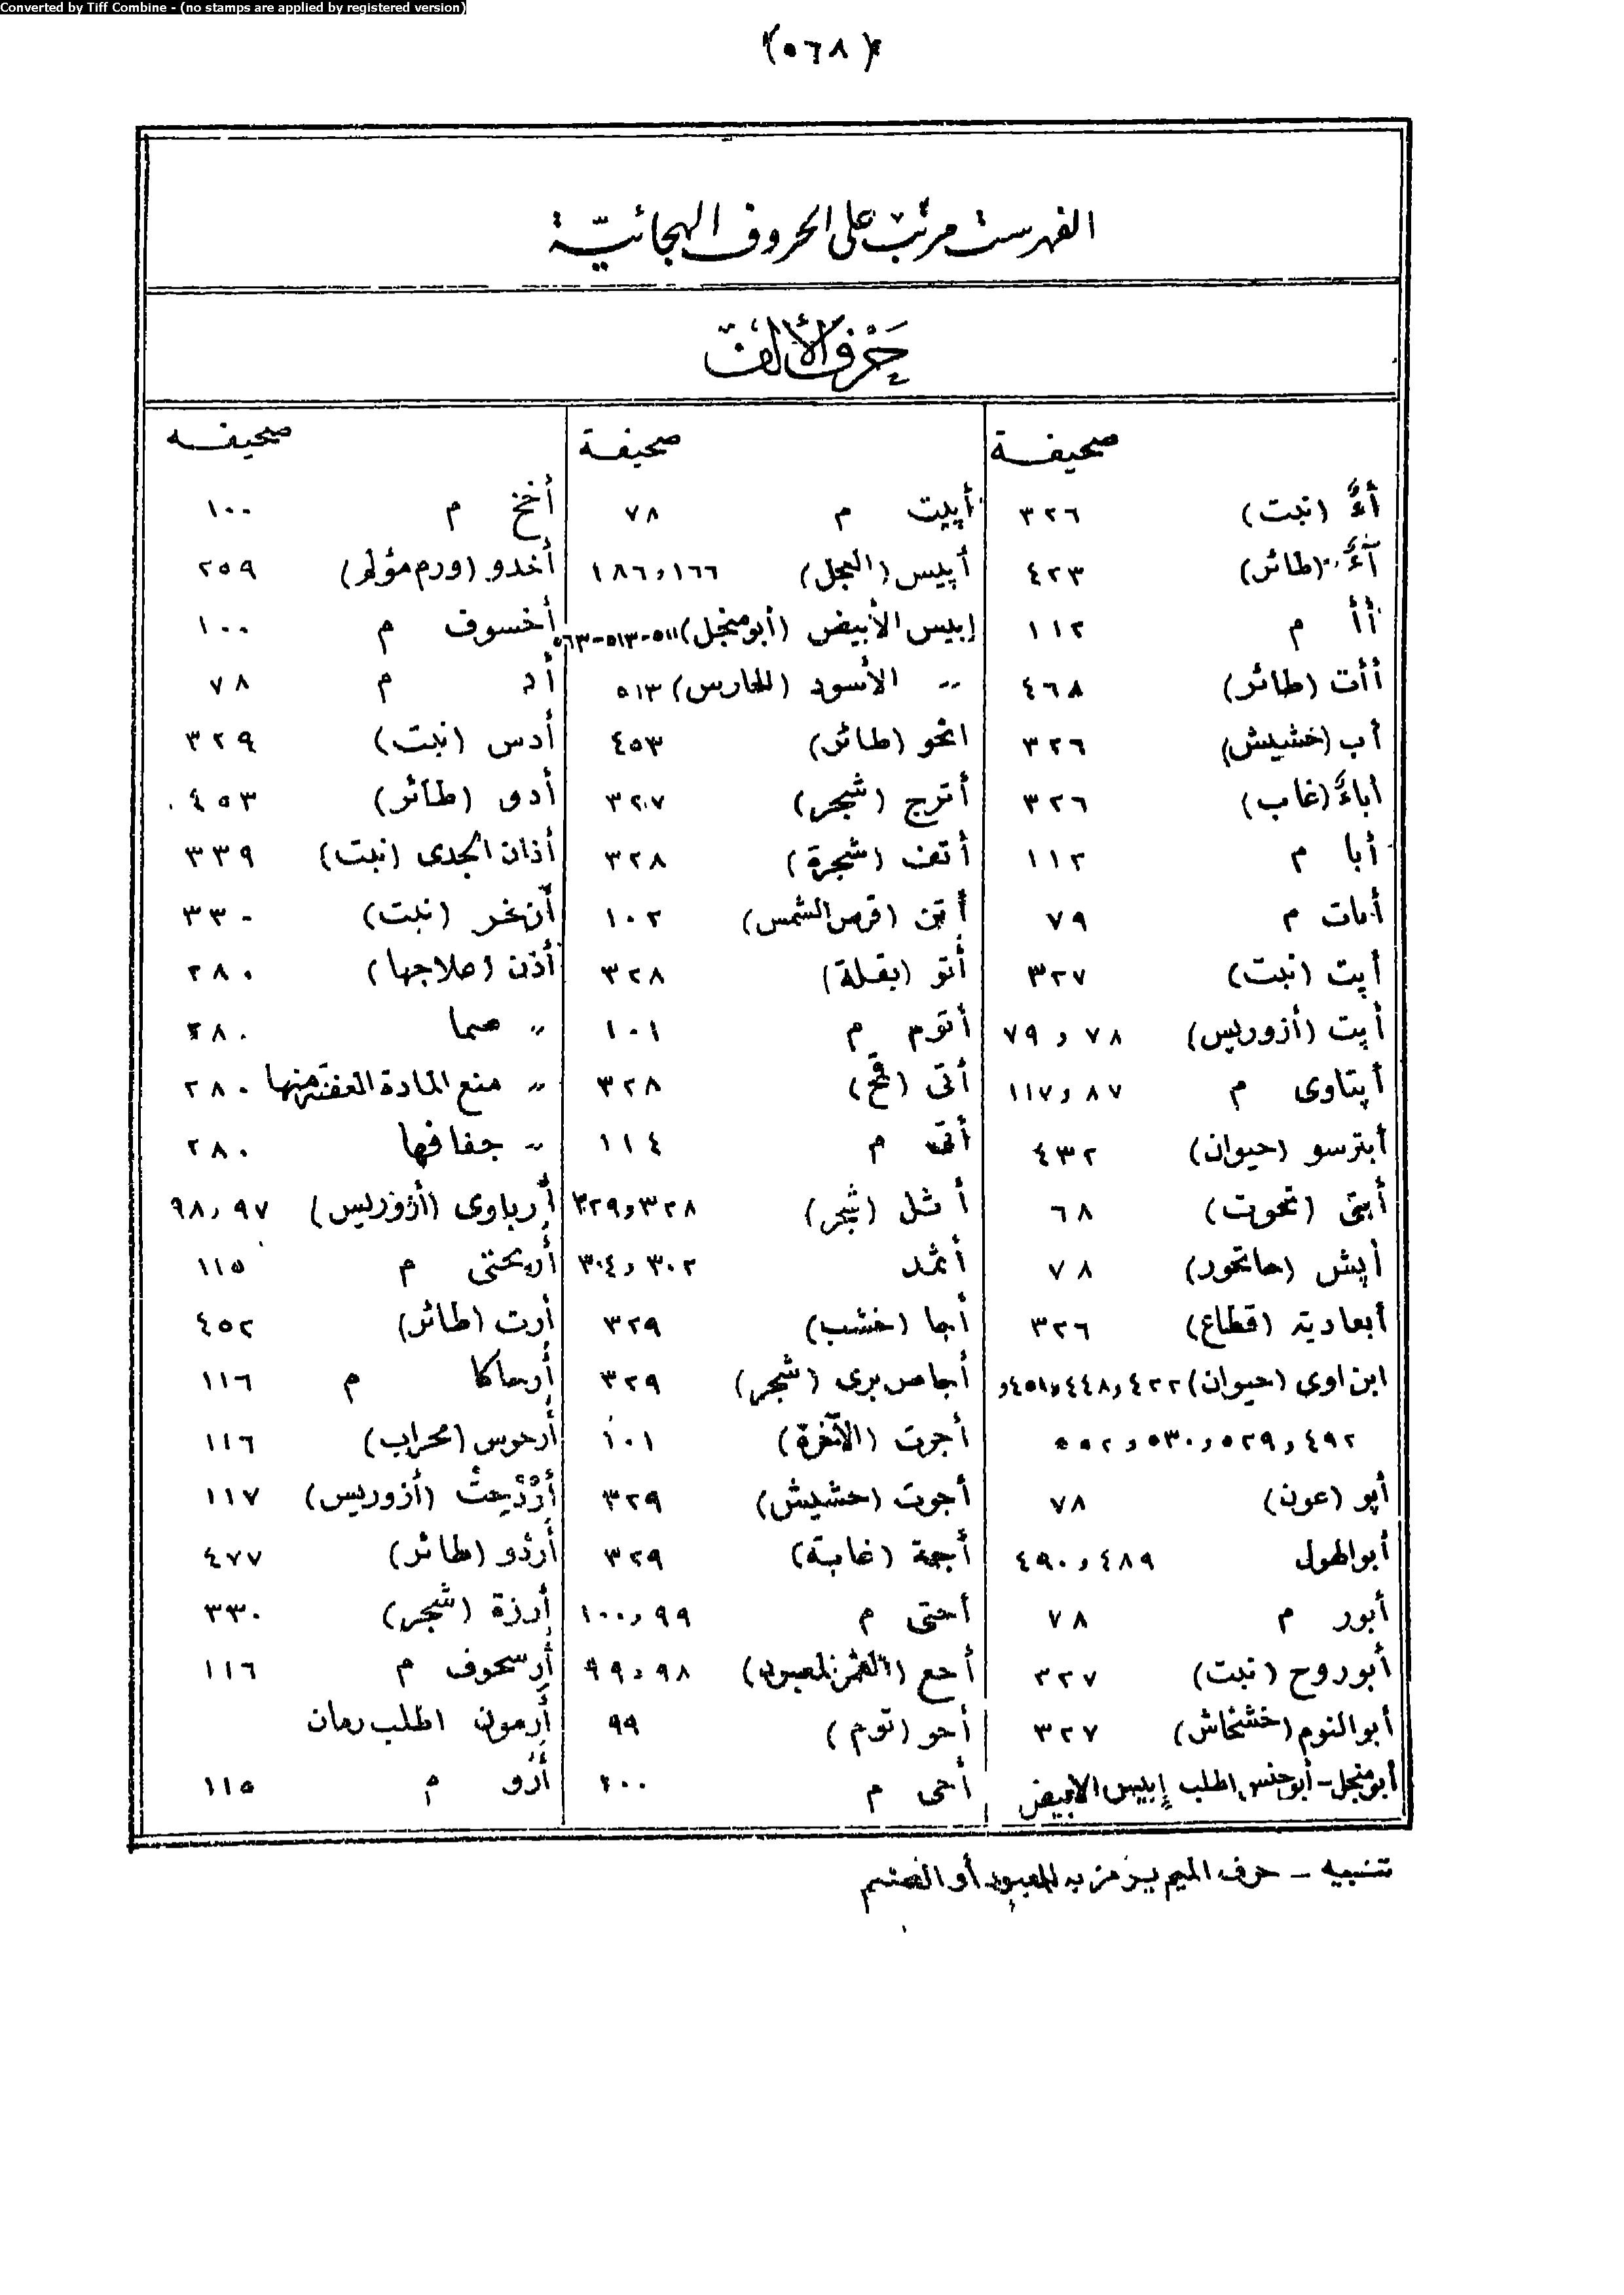 Converted by Tiff Combine - (no stamps are applied by registered version)
(٥٦٨)
الفهرست مرتب على الحروف الهجائيّة
حَرف الألف
صحيفة
أءٌ (نبت) ٣٢٦
آءٌ (طائر) ٤٢٣
أأ م ١١٢
أأت (طائر) ٤٦٨
أب (خشيش) ٣٢٦
أباءٌ (غاب) ٣٢٦
أبا م ١١٢
أبات م ٧٩
أپت (نبت) ٣٢٧
أپت (أزوريس) ٧٨ و ٧٩
أپتاوى م ٨٧ و ١١٧
أبترسو (حيوان) ٤٣٢
أبتى (تحوت) ٦٨
أپش (حاتحور) ٧٨
أبعادية (قطاع) ٣٢٦
ابن اوى (حيوان) ٤٢٢ و ٤٤٨ و ٤٥١ و
٤٩٢ و ٥٢٩ و ٥٣٠ و ٥٥٢
أپو (عون) ٧٨
أبو الهول ٤٨٩ و ٤٩٠
أبور م ٧٨
أبو روح (نبت) ٣٢٧
أبو النوم (خشخاش) ٣٢٧
أبو منجل - أبو حنس اطلب إبيس الأبيض
صحيفة
أپيت م ٧٨
أپيس (العجل) ١٦٦ و ١٨٦
إبيس الأبيض (أبو منجل) ٥١١-٥١٣-٥٦٣
〃 الأسود (الحارس) ٥١٣
اتحو (طائر) ٤٥٣
أترج (شجر) ٣٢٧
أتف (شجرة) ٣٢٨
أتن (قرص الشمس) ١٠٢
أتو (بقلة) ٣٢٨
أتوم م ١٠١
أتى (قمح) ٣٢٨
أتى م ١١٤
أثل (شجر) ٣٢٨ و ٣٢٩
أثمد ٣٠٢ و ٣٠٤
أجا (خشب) ٣٢٩
أجاص برى (شجر) ٣٢٩
أجرت (الآخرة) ١٠١
أجوت (حشيش) ٣٢٩
أجمة (غابة) ٣٢٩
أحتى م ٩٩ و ١٠٠
أحع (القمر المعبود) ٩٨ و ٩٩
أحو (توم) ٩٩
أحى م ١٠٠
صحيفه
أخخ م ١٠٠
أخدو (ورم مؤلم) ٢٥٩
أخسوف م ١٠٠
أد م ٧٨
أدس (نبت) ٣٢٩
أدو (طائر) ٤٥٣
أذان الجدى (نبت) ٣٣٩
(نبت) ٣٣٠
أذن (علاجها) ٢٨٠
〃 صما ٢٨٠
〃 منع المادة العفنة منها ٢٨٠
〃 جفافها ٢٨٠
أرباوى (أزوريس) ٩٧ و ٩٨
أربحنتى م ١١٥
أرت (طائر) ٤٥٢
أرحاكا م ١١٦
أرحوس (محراب) ١١٦
(أزوريس) ١١٧
أردو (طائر) ٤٧٧
أرزة (شجر) ٣٣٠
أرسحوف م ١١٦
أرمون اطلب رمان
أرو م ١١٥
تنبيه - حرف الميم يرمز به للمعبود أو الصنم